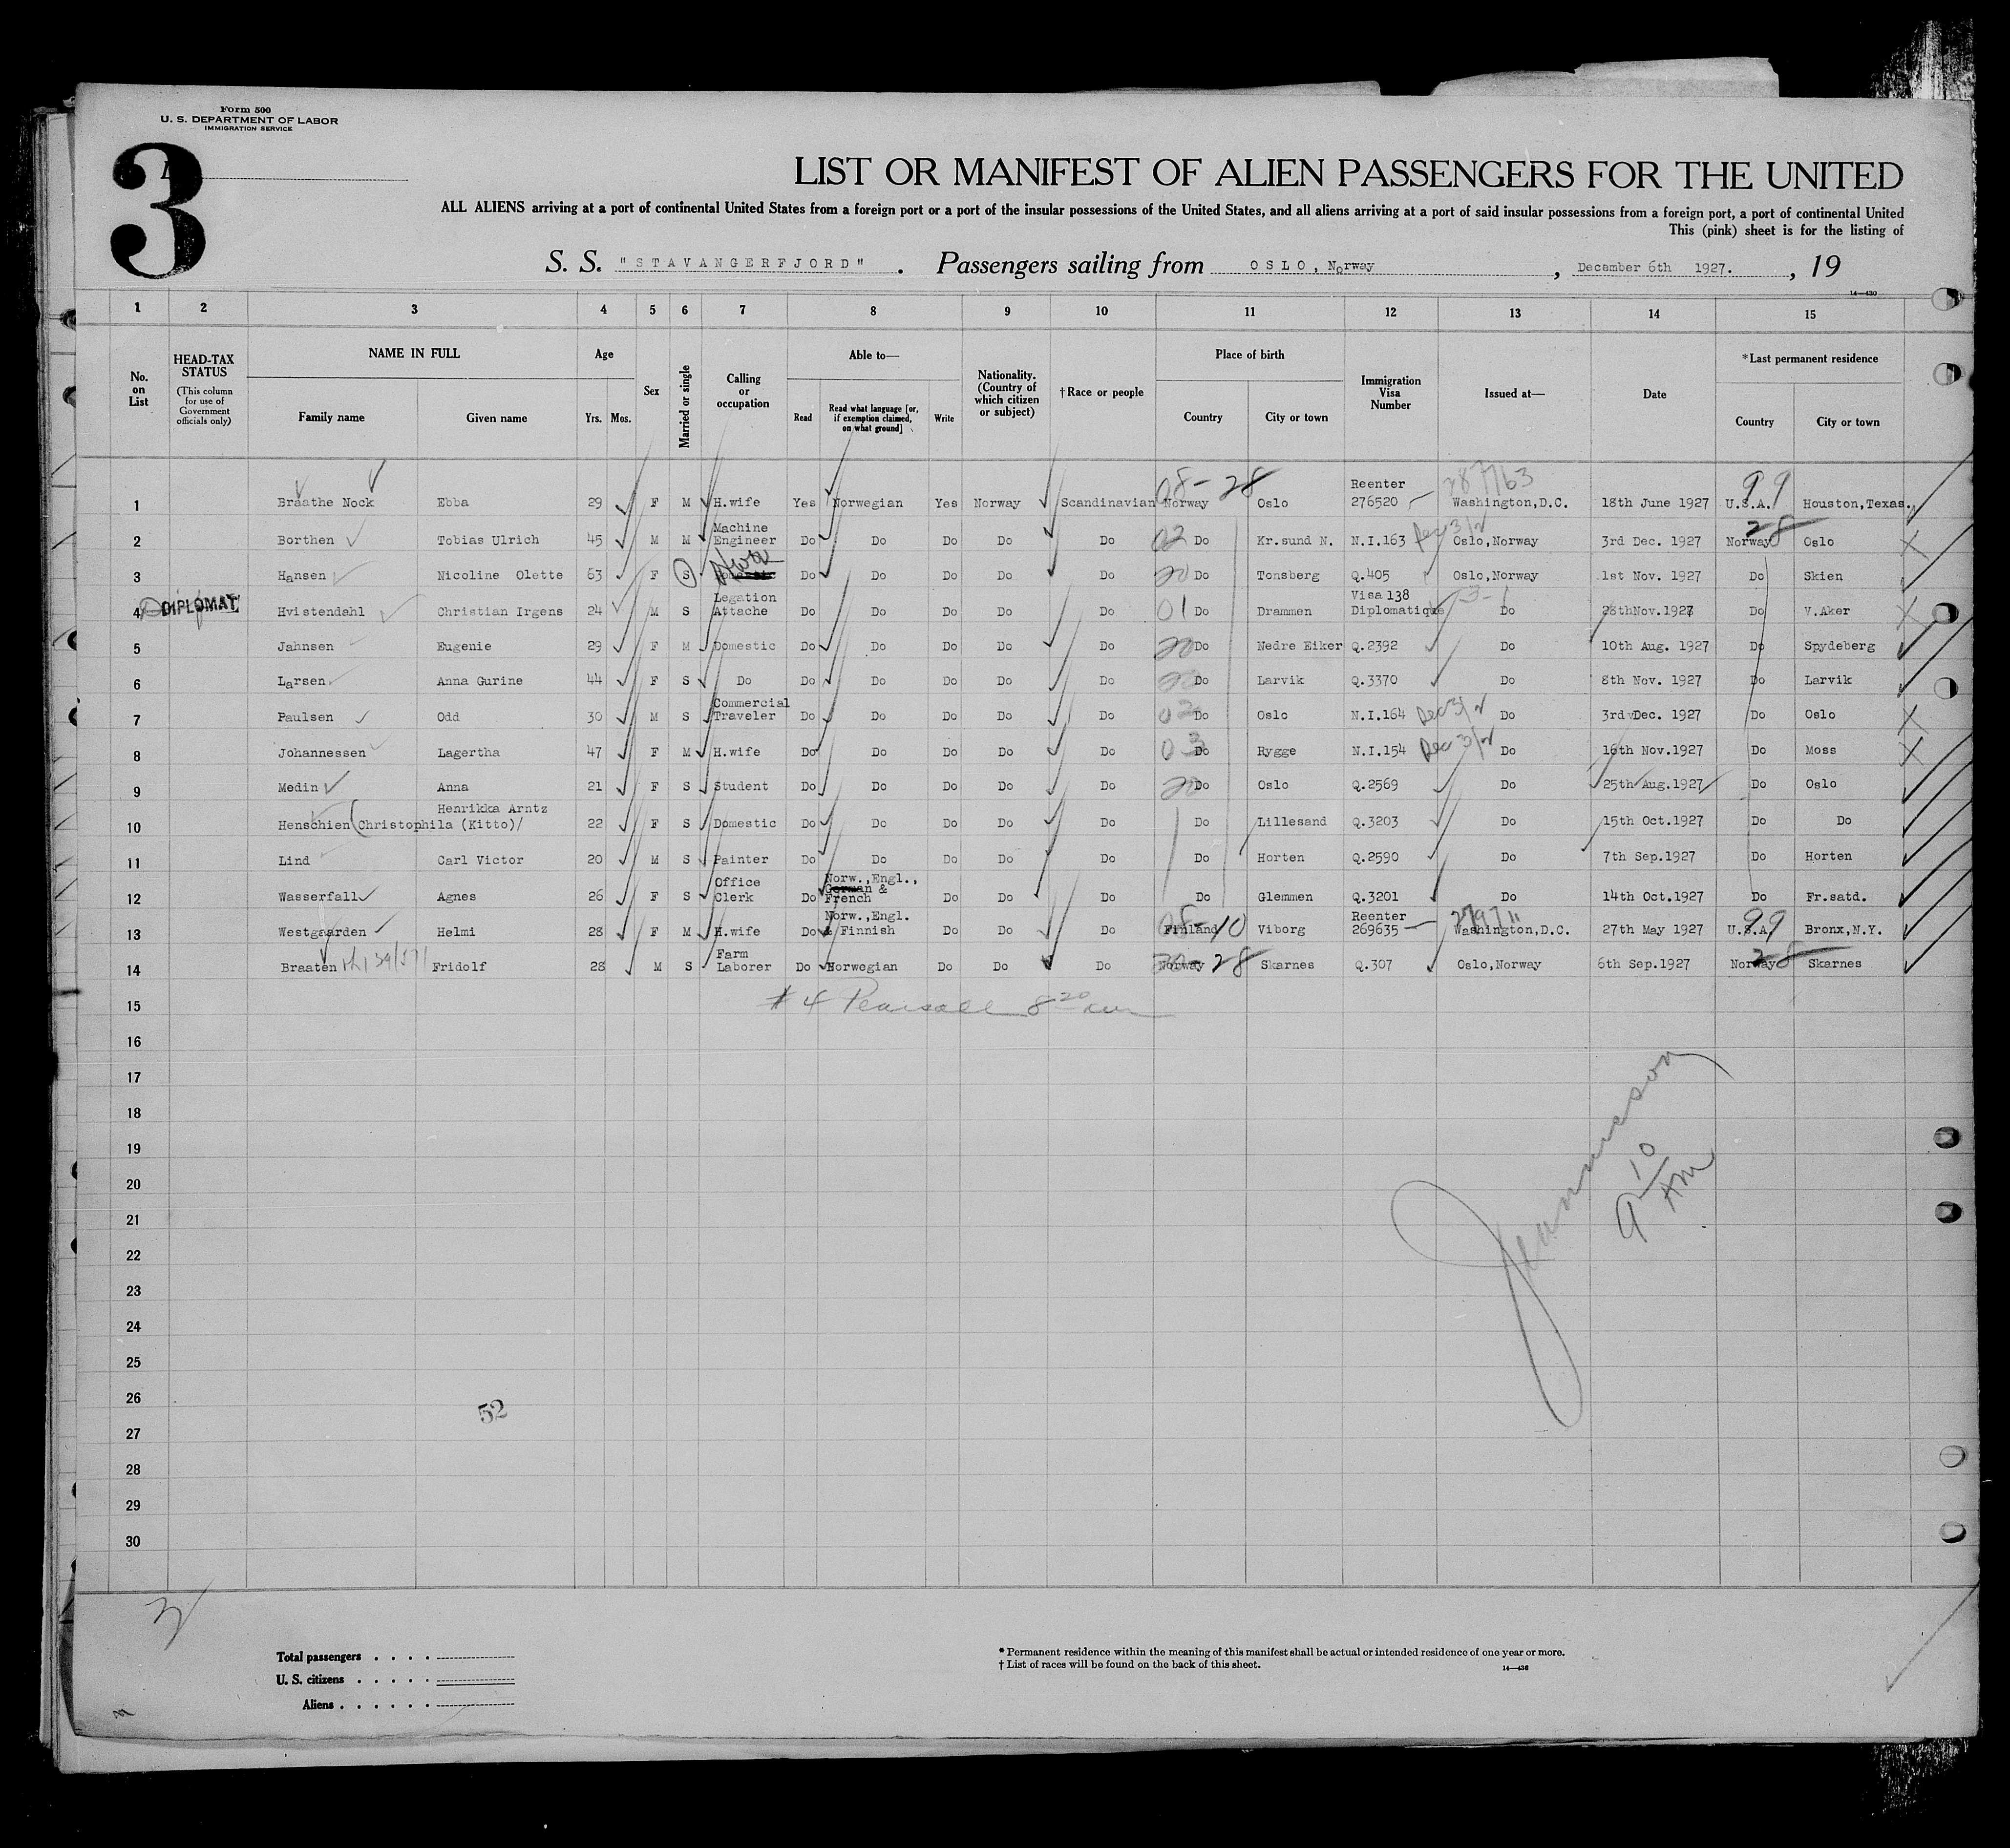 Form 500
U. S. DEPARTMENT OF LABOR
IMMIGRATION SERVICE
3
LIST OR MANIFEST OF ALIEN PASSENGERS FOR THE UNITED
ALL ALIENS arriving at a port of continental United States from a foreign port or a port of the insular possessions of the United States, and all aliens arriving at a port of said insular possessions from a foreign port, a port of continental United
This (pink) sheet is for the listing of
S. S. "STAVANGERFJORD". Passengers sailing from OSLO, Norway, December 6th 1927., 19
14—430
1 2 3 4 5 6 7 8 9 10 11 12 13 14 15
No. on List
HEAD-TAX STATUS (This column for use of Government officials only)
NAME IN FULL Family name Given name
Age Yrs. Mos.
Sex
Married or single
Calling or occupation
Able to— Read Read what language [or, if exemption claimed, on what ground] Write
Nationality. (Country of which citizen or subject)
† Race or people
Place of birth Country City or town
Immigration Visa Number
Issued at—
Date
*Last permanent residence Country City or town
1 Braathe Nock Ebba 29 F M H.wife Yes Norwegian Yes Norway Scandinavian 08-28 Norway Oslo Reenter 276520 287763 Washington,D.C. 18th June 1927 99 U.S.A. Houston,Texas.
2 Borthen Tobias Ulrich 45 M M Machine Engineer Do Do Do Do Do 02 Do Kr.sund N. N.I.163 Dec 3/2 Oslo,Norway 3rd Dec. 1927 28 Norway Oslo
3 Hansen Nicoline Olette 63 F S Do Do Do Do Do 20 Do Tonsberg Q.405 Oslo,Norway 1st Nov. 1927 Do Skien
4 DIPLOMAT Hvistendahl Christian Irgens 24 M S Legation Attache Do Do Do Do Do 01 Do Drammen Visa 138 Diplomatique 3-1 Do 28thNov.1927 Do V.Aker
5 Jahnsen Eugenie 29 F M Domestic Do Do Do Do Do 20 Do Nedre Eiker Q.2392 Do 10th Aug. 1927 Do Spydeberg
6 Larsen Anna Gurine 44 F S Do Do Do Do Do Do 20 Do Larvik Q.3370 Do 8th Nov. 1927 Do Larvik
7 Paulsen Odd 30 M S Commercial Traveler Do Do Do Do Do 02 Do Oslo N.I.164 Dec 3/2 Do 3rd Dec. 1927 Do Oslo
8 Johannessen Lagertha 47 F M H.wife Do Do Do Do Do 03 Do Rygge N.I.154 Dec 3/2 Do 16th Nov.1927 Do Moss
9 Medin Anna 21 F S Student Do Do Do Do Do 20 Do Oslo Q.2569 Do 25th Aug.1927 Do Oslo
10 Henschien (Christophila (Kitto)/ Henrikka Arntz 22 F S Domestic Do Do Do Do Do Do Lillesand Q.3203 Do 15th Oct.1927 Do Do
11 Lind Carl Victor 20 M S Painter Do Do Do Do Do Do Horten Q.2590 Do 7th Sep.1927 Do Horten
12 Wasserfall Agnes 26 F S Office Clerk Do Norw.,Engl., German & French Do Do Do Do Glemmen Q.3201 Do 14th Oct.1927 Do Fr.satd.
13 Westgaarden Helmi 28 F M H.wife Do Norw.,Engl. & Finnish Do Do Do 08-10 Finland Viborg Reenter 269635 27971 Washington,D.C. 27th May 1927 99 U.S.A Bronx,N.Y.
14 Braaten Fridolf 28 M S Farm Laborer Do Norwegian Do Do Do 20-28 Norway Skarnes Q.307 Oslo,Norway 6th Sep.1927 28 Norway Skarnes
15 # 4 Pearsall 8 20 am
16
17
18
19
20
21
22
23
24
25
26
27
28
29
30
Jamieson
9 10 AM
52
Total passengers . . . .
U. S. citizens . . . . .
Aliens . . . . . .
* Permanent residence within the meaning of this manifest shall be actual or intended residence of one year or more.
† List of races will be found on the back of this sheet.
14—438